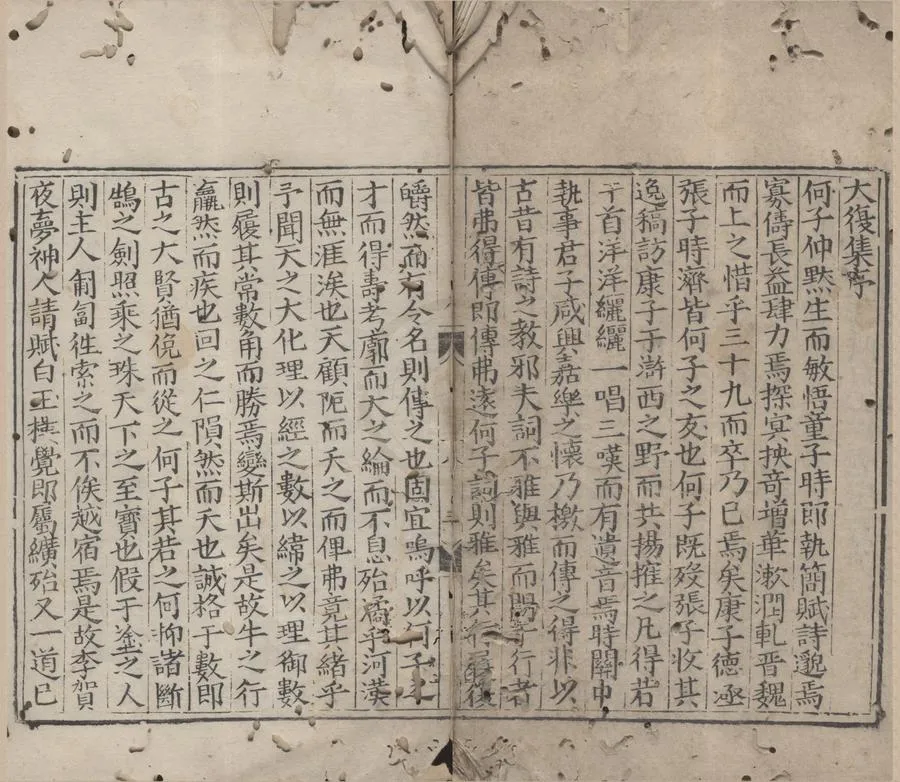 大復集序
何子仲黙生而敏悟童子時即執簡賦詩邈焉
寡儔長益肆力焉探冥抉竒增華漱潤軋晋魏
而上之惜乎三十九而卒乃已焉矣康子德涵
張子時濟皆何子之友也何子既殁張子收其
逸稿訪康子于滸西之野而共揚搉之凡得若
干首洋洋纚纚一唱三嘆而有遺音焉時關中
執事君子咸興嘉樂之懷乃檄而傳之得非以
古昔有詩之教邪夫詞不雅與雅而賜行者
皆弗得傳即傳弗遠何子詞則雅矣其行履復
皭然而有令名則傳之也固宜嗚呼以何子之
才而得壽考廓而大之綸而不息殆矞乎河漢
而無涯涘也天顧阨而夭之而俾弗竟其緒乎
予聞天之大化理以經之數以緯之以理御數
則履其常數甬而勝焉變斯出矣是故牛之行
羸然而疾也回之仁隕然而夭也誠格于數即
古之大賢猶俛而從之何子其若之何抑諸斷
鵠之劍照乘之珠天下之至寳也假于盗之人
則主人匍匐徃索之而不俟越宿焉是故李賀
夜夢神人請賦白玉樓覺即屬纊殆又一道已